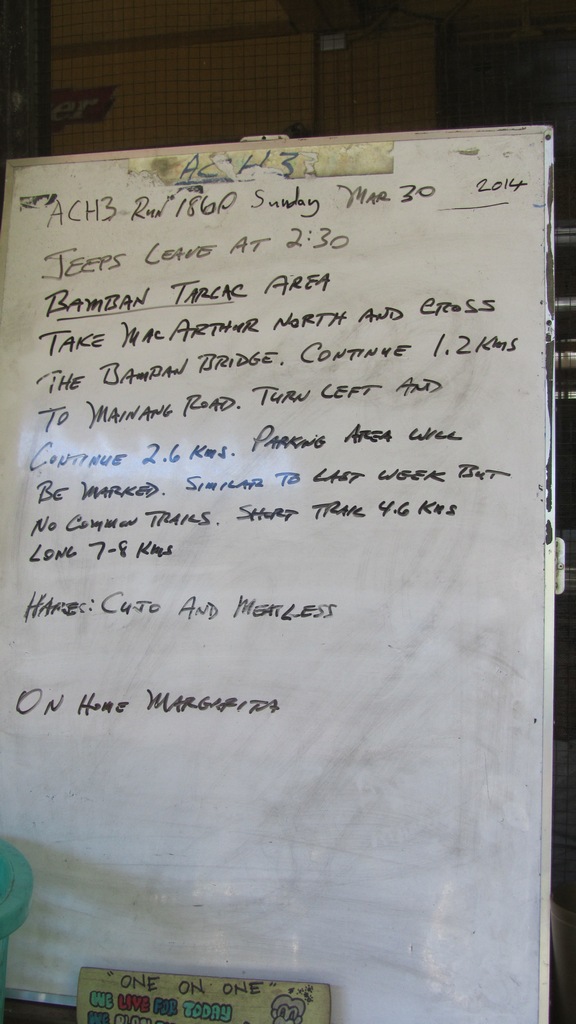 er
ACH3
ACH3 Run 1860 Sunday Mar 30 2014
JEEPS LEAVE AT 2:30
BAMBAN TARLAC AREA
TAKE MACARTHUR NORTH AND CROSS
THE BAMBAN BRIDGE. CONTINUE 1.2 KMS
TO MAINANG ROAD. TURN LEFT AND
CONTINUE 2.6 KMS. PARKING AREA WILL
BE MARKED. SIMILAR TO LAST WEEK BUT
NO COMMON TRAILS. SHORT TRAIL 4.6 KMS
LONG 7-8 KMS
HARES: CUJO AND MEATLESS
ON HOME MARGARITA
"ONE ON ONE"
WE LIVE FOR TODAY
WE PLAN